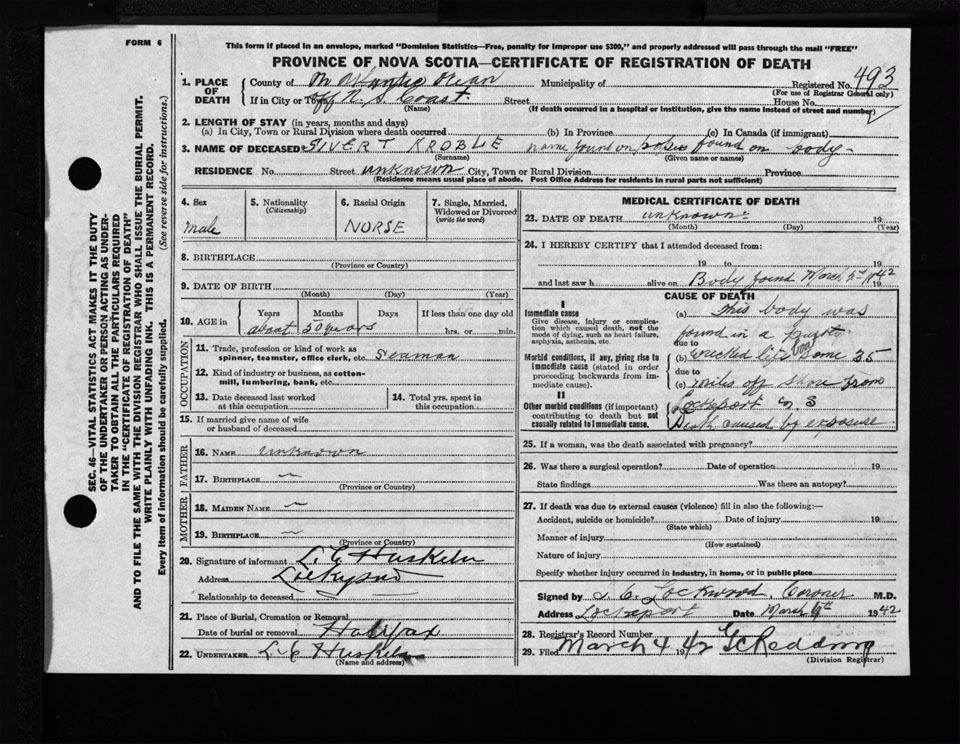 FORM 6
This form if placed in an envelope, marked "Dominion Statistics—Free, penalty for improper use $300," and properly addressed will pass through the mail "FREE"
PROVINCE OF NOVA SCOTIA—CERTIFICATE OF REGISTRATION OF DEATH
SEC. 46—VITAL STATISTICS ACT MAKES IT THE DUTY
OF THE UNDERTAKER OR PERSON ACTING AS UNDER-
TAKER TO OBTAIN ALL THE PARTICULARS REQUIRED
IN THE "CERTIFICATE OF REGISTRATION OF DEATH"
AND TO FILE THE SAME WITH THE DIVISION REGISTRAR WHO SHALL ISSUE THE BURIAL PERMIT.
WRITE PLAINLY WITH UNFADING INK. THIS IS A PERMANENT RECORD.
Every item of information should be carefully supplied. (See reverse side for instructions.)
1. PLACE OF DEATH County of Atlantic Ocean Municipality of Registered No. 493
(For use of Registrar General only)
If in City or Town off N. S. Coast. Street House No.
(Name) (If death occurred in a hospital or institution, give the name instead of street and number)
2. LENGTH OF STAY (in years, months and days)
(a) In City, Town or Rural Division where death occurred (b) In Province (c) In Canada (if immigrant)
3. NAME OF DECEASED SIVERT KROBLE name found on found on body
(Surname) (Given name or names)
RESIDENCE No. Street unknown City, Town or Rural Division Province
(Residence means usual place of abode. Post Office Address for residents in rural parts not sufficient)
4. Sex 5. Nationality 6. Racial Origin 7. Single, Married,
(Citizenship) Widowed or Divorced
(write the word)
male NORSE
8. BIRTHPLACE
(Province or Country)
9. DATE OF BIRTH
(Month) (Day) (Year)
10. AGE in Years Months Days If less than one day old
about 50 years hrs. or min.
OCCUPATION
11. Trade, profession or kind of work as
spinner, teamster, office clerk, etc. Seaman
12. Kind of industry or business, as cotton-
mill, lumbering, bank, etc.
13. Date deceased last worked
at this occupation
14. Total yrs. spent in
this occupation
15. If married give name of wife
or husband of deceased
FATHER
16. NAME unknown
17. BIRTHPLACE —
(Province or Country)
MOTHER
18. MAIDEN NAME —
19. BIRTHPLACE —
(Province or Country)
20. Signature of informant L. E Huskilson
Address Lockeport
Relationship to deceased
21. Place of Burial, Cremation or Removal
Date of burial or removal Halifax
22. UNDERTAKER L. E Huskilson
(Name and address)
MEDICAL CERTIFICATE OF DEATH
23. DATE OF DEATH unknown 19
(Month) (Day) (Year)
24. I HEREBY CERTIFY that I attended deceased from:
19 to 19
and last saw h alive on Body found March 1942
CAUSE OF DEATH
I
Immediate cause
Give disease, injury or complica-
tion which caused death, not the
mode of dying, such as heart failure,
asphyxia, asthenia, etc.
Morbid conditions, if any, giving rise to
immediate cause (stated in order
proceeding backwards from im-
mediate cause).
II
Other morbid conditions (if important)
contributing to death but not
causally related to immediate cause.
(a) This body was
due to found in a
(b) wrecked life some 35
due to
(c) miles off shore from
Lockeport N S
Death caused by exposure
25. If a woman, was the death associated with pregnancy?
26. Was there a surgical operation? Date of operation 19
State findings Was there an autopsy?
27. If death was due to external causes (violence) fill in also the following:—
Accident, suicide or homicide? Date of injury 19
(State which)
Manner of injury
(How sustained)
Nature of injury
Specify whether injury occurred in industry, in home, or in public place
Signed by Lockwood Coroner M.D.
Address Lockeport Date March 4th 1942
28. Registrar's Record Number
29. Filed March 4 1942 G C Redding
(Division Registrar)